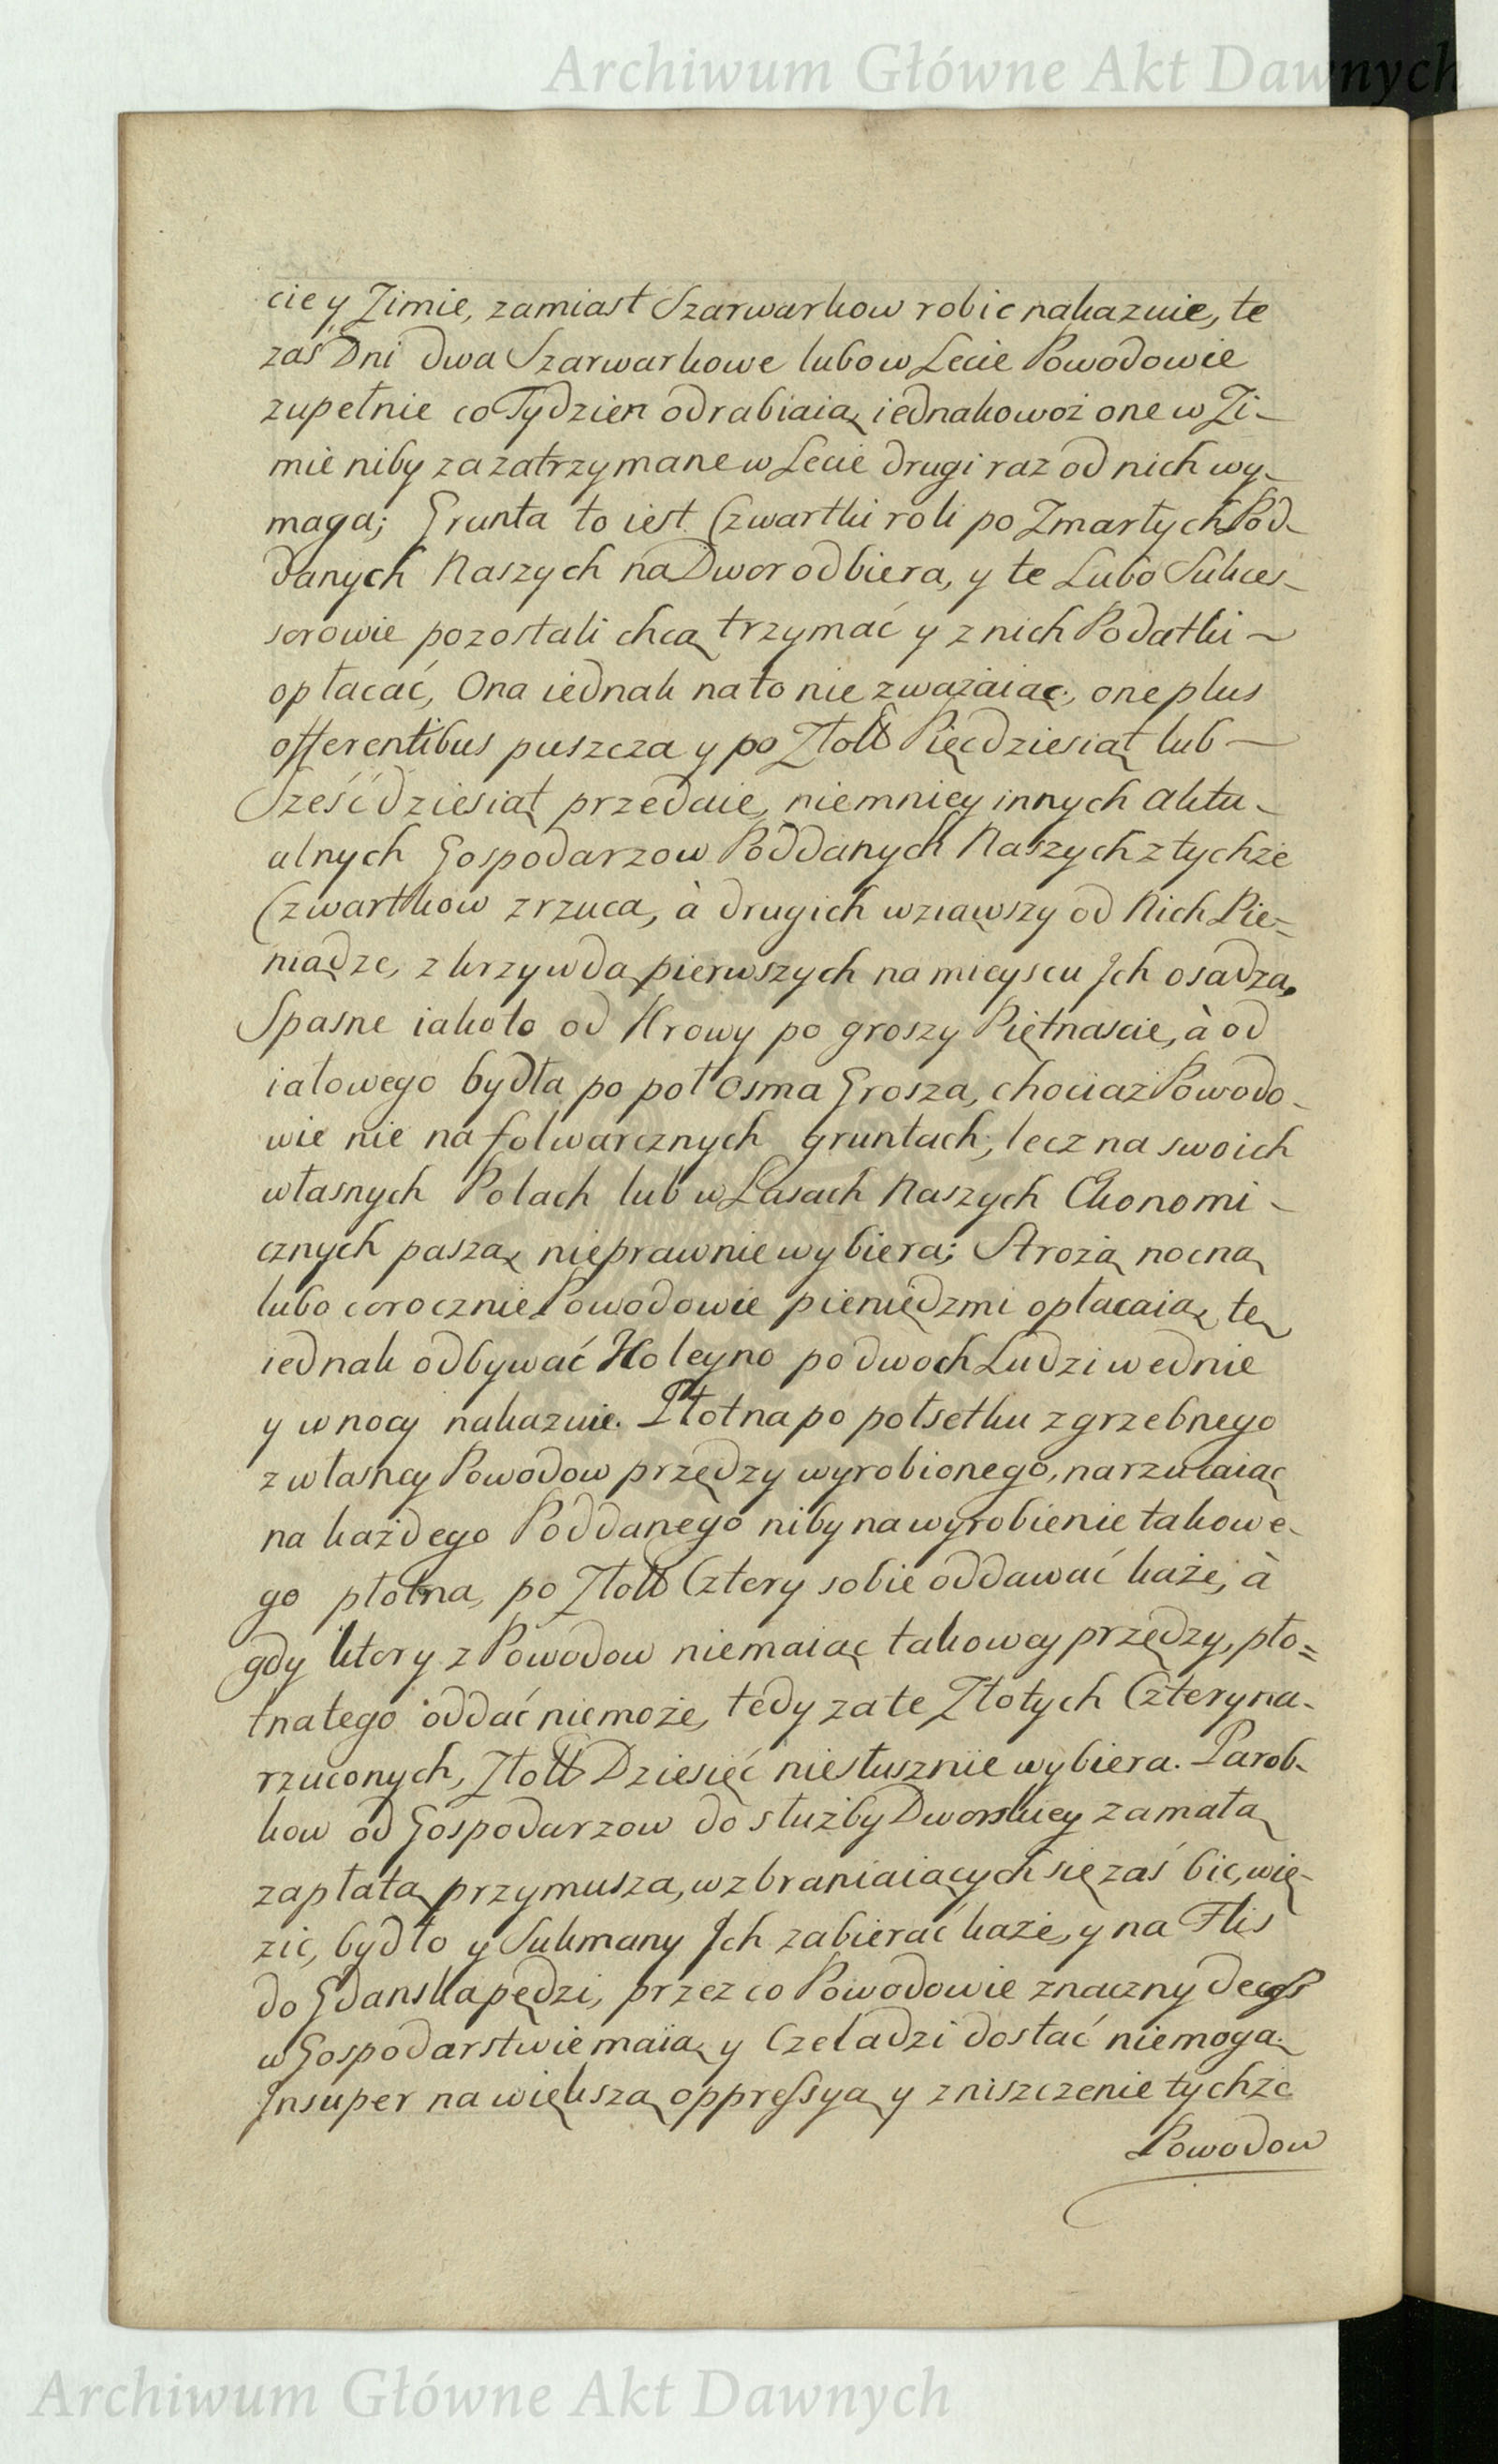 Archiwum Główne Akt Dawnych
cie y Zimie, zamiast Szarwarkow robic nakazuie, te
zaś Dni dwa Szarwarkowe lubo w Lecie Powodowie
zupełnie co Tydzien odrabiaią, iednakowoż one w Zi-
mie niby za zatrzymane w Lecie drugi raz od nich wy-
maga; Grunta to iest Czwartki roli po Zmarłych Pod-
danych Naszych na Dwor odbiera, y te Lubo Sukces-
sorowie pozostali chcą trzymać y z nich Podatki ~
opłacać, Ona iednak na to nie zważaiąc, one plus
offerentibus puszcza y po Złott Pięcdziesiąt lub —
Sześćdziesiąt przedaie, niemniey innych aktu-
alnych Gospodarzow Poddanych Naszych z tychże
Czwartkow zrzuca, à drugich wziąwszy od Nich Pie-
niądze, z krzywdą pierwszych na mieyscu Ich osadza,
Spasne iakoto od Krowy po groszy Piętnascie, à od
iałowego bydła po poł osma Grosza, chociaż Powodo-
wie nie na folwarcznych gruntach, lecz na swoich
własnych Polach lub w Lasach Naszych Ekonomi-
cznych paszą, nieprawnie wybiera; Strożą nocną
lubo corocznie Powodowie pieniędzmi opłacaią, tę
iednak odbywać Koleyno po dwoch Ludzi wednie
y w nocy nakazuie. Płotna po połsetku zgrzebnego
z własney Powodow przędzy wyrobionego, narzucaiąc
na każdego Poddanego niby na wyrobienie takowe-
go płotna, po Złott Cztery sobie oddawać każe, à
gdy ktory z Powodow niemaiąc takowey przędzy, pło=
tna tego oddać niemoże, tedy za te Złotych Cztery na-
rzuconych, Złott Dziesięć niesłusznie wybiera. Parob-
kow od Gospodarzow do służby Dworskiey za małą
zapłatą przymusza, wzbraniaiących się zaś bic, wię-
zic, bydło y Sukmany Ich zabierać każe, y na Flis
do Gdanska pędzi, przez co Powodowie znaczny decess
w Gospodarstwie maią, y Czeladzi dostać niemogą.
Insuper na większą oppressyą y zniszczenie tychże
Powodow
Archiwum Główne Akt Dawnych